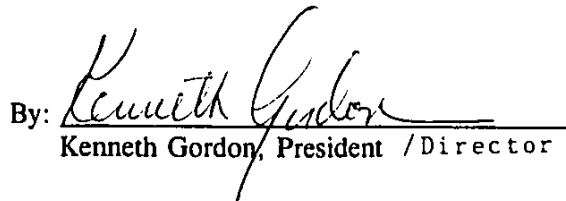 By: Kenneth Gordon
Kenneth Gordon, President /Director